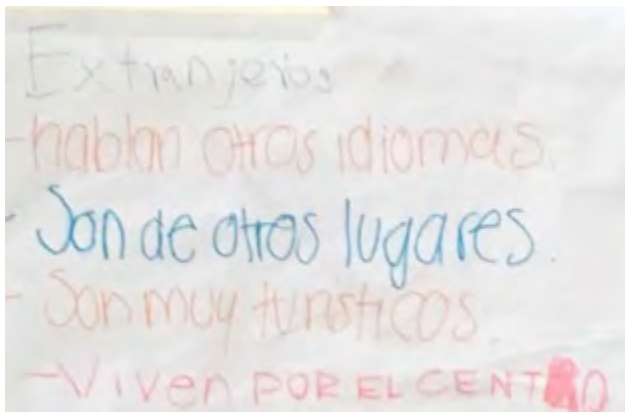 Extranjeros
-hablan otros idiomas.
- Son de otros lugares.
- Son muy turísticos.
-Viven POR EL CENTRO